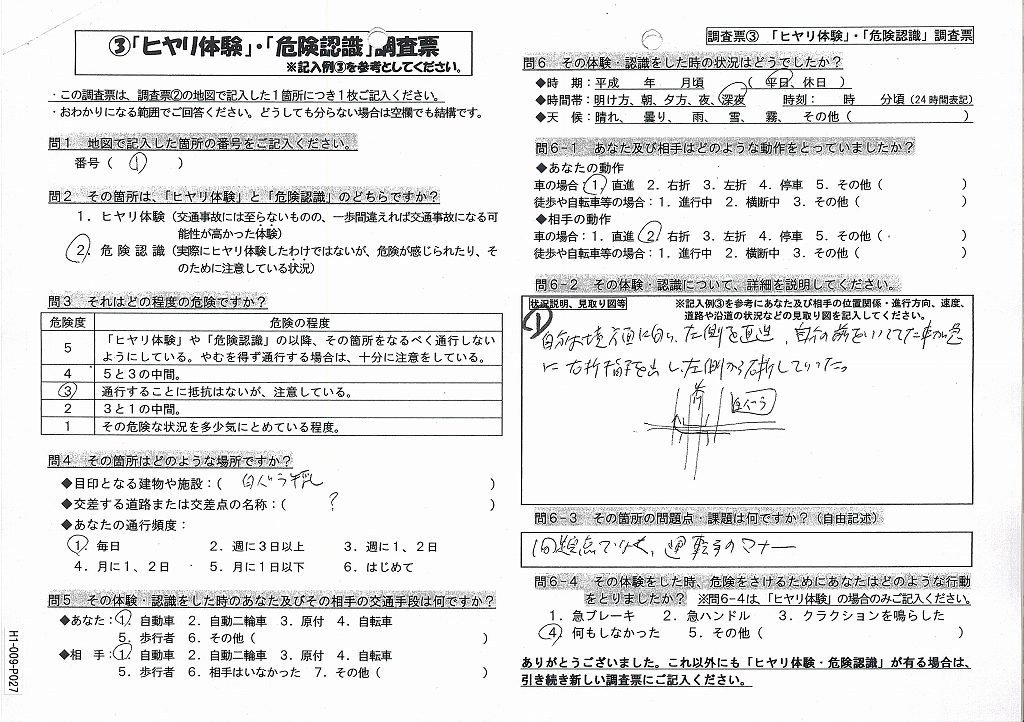 ③「ヒヤリ体験」・「危険認識」調査票
※記入例③を参考としてください。
・この調査票は、調査票②の地図で記入した1箇所につき1枚ご記入ください。
・おわかりになる範囲でご回答ください。どうしても分らない場合は空欄でも結構です。
問1 地図で記入した箇所の番号をご記入ください。
番号( ① )
問2 その箇所は、「ヒヤリ体験」と「危険認識」のどちらですか?
1.ヒヤリ体験(交通事故には至らないものの、一歩間違えれば交通事故になる可
能性が高かった体験)
2.危険認識(実際にヒヤリ体験したわけではないが、危険が感じられたり、そ
のために注意している状況)
問3 それはどの程度の危険ですか?
危険度 危険の程度
5 「ヒヤリ体験」や「危険認識」の以降、その箇所をなるべく通行しない
ようにしている。やむを得ず通行する場合は、十分に注意をしている。
4 5と3の中間。
③ 通行することに抵抗はないが、注意している。
2 3と1の中間。
1 その危険な状況を多少気にとめている程度。
問4 その箇所はどのような場所ですか?
◆目印となる建物や施設:( )
◆交差する道路または交差点の名称:( ? )
◆あなたの通行頻度:
①.毎日 2.週に3日以上 3.週に1、2日
4.月に1、2日 5.月に1日以下 6.はじめて
問5 その体験・認識をした時のあなた及びその相手の交通手段は何ですか?
◆あなた:①.自動車 2.自動二輪車 3.原付 4.自転車
5.歩行者 6.その他( )
◆相 手:①.自動車 2.自動二輪車 3.原付 4.自転車
5.歩行者 6.相手はいなかった 7.その他( )
H1-009-P027
調査票③ 「ヒヤリ体験」・「危険認識」調査票
問6 その体験・認識をした時の状況はどうでしたか?
◆時 期:平成 年 月頃 ( 平日、休日 )
◆時間帯:明け方、朝、夕方、夜、深夜 時刻: 時 分頃(24時間表記)
◆天 候:晴れ、 曇り、 雨、 雪、 霧、 その他( )
問6-1 あなた及び相手はどのような動作をとっていましたか?
◆あなたの動作
車の場合:①.直進 2.右折 3.左折 4.停車 5.その他( )
徒歩や自転車等の場合:1.進行中 2.横断中 3.その他( )
◆相手の動作
車の場合:1.直進 ②.右折 3.左折 4.停車 5.その他( )
徒歩や自転車等の場合:1.進行中 2.横断中 3.その他( )
問6-2 その体験・認識について、詳細を説明してください。
状況説明、見取り図等 ※記入例③を参考にあなた及び相手の位置関係・進行方向、速度、
道路や沿道の状況などの見取り図を記入してください。
①
自分は 方面に向い 左側を直進、自分の前を
に右折 を出し、左側から右折していった。
問6-3 その箇所の問題点・課題は何ですか?(自由記述)
問題点 運転手のマナー
問6-4 その体験をした時、危険をさけるためにあなたはどのような行動
をとりましたか? ※問6-4は、「ヒヤリ体験」の場合のみご記入ください。
1.急ブレーキ 2.急ハンドル 3.クラクションを鳴らした
④.何もしなかった 5.その他( )
ありがとうございました。これ以外にも「ヒヤリ体験・危険認識」が有る場合は、
引き続き新しい調査票にご記入ください。